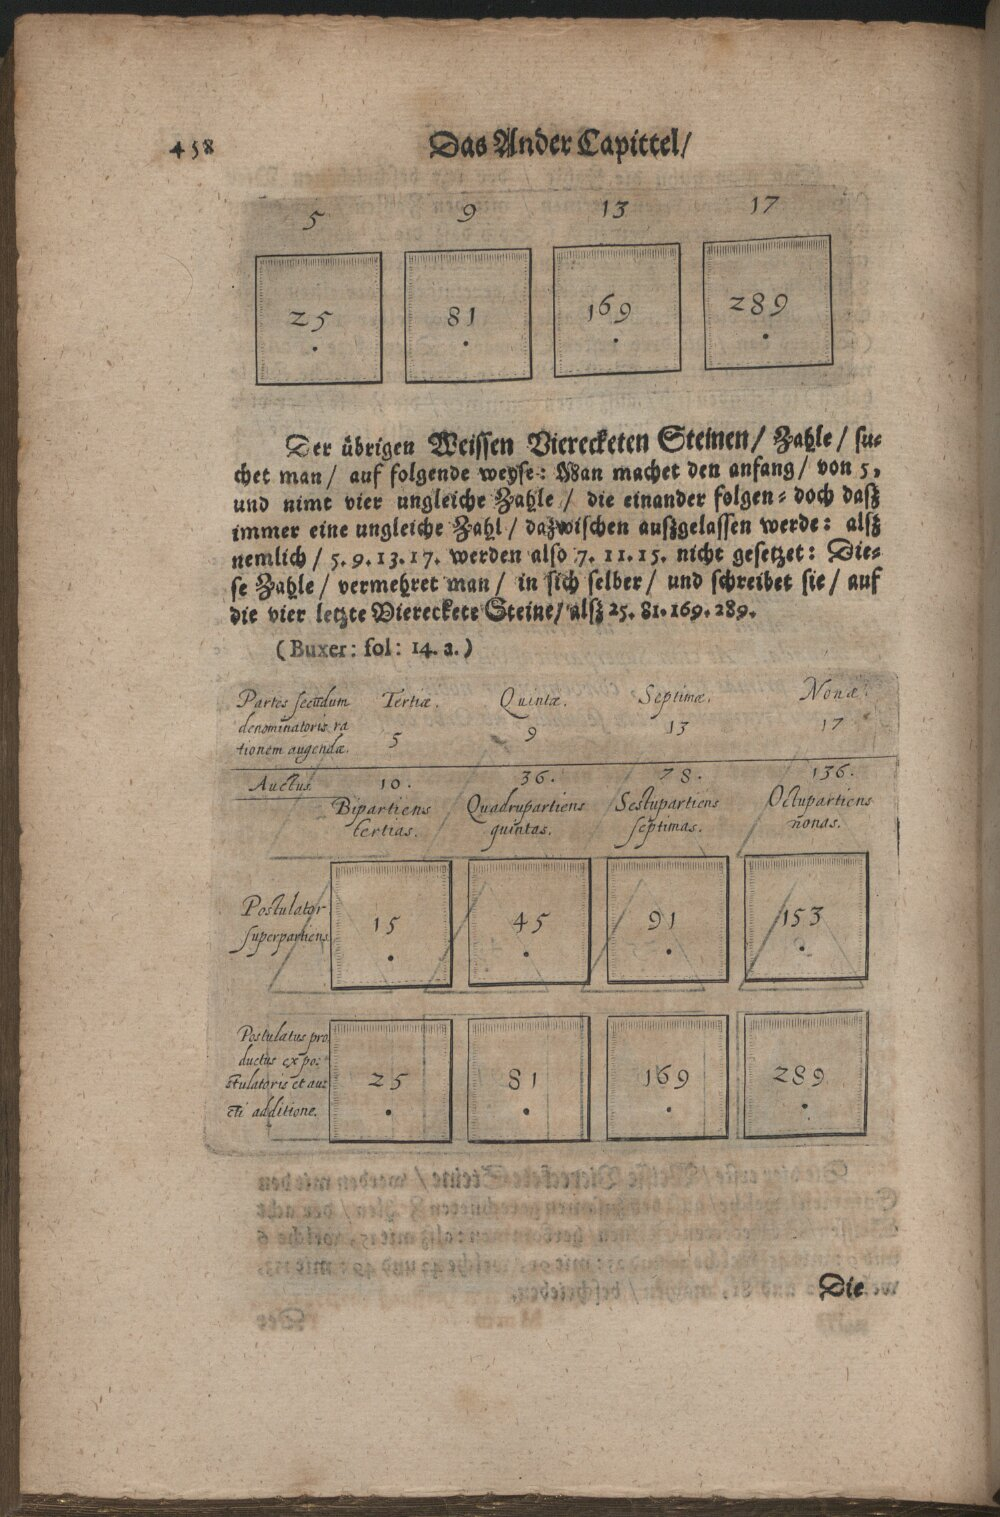 458 Das Ander Capittel/
5 9 13 17
25 81 169 289
Der übrigen Weissen Viereckete​n Steinen/ Zahle/ su-
chet man/ auf folgende weyse: Man machet den anfang/ von 5,
und nimt vier ungleiche Zahle/ die einander folgen: doch daſz
immer eine ungleiche Zahl/ dazwischen auſzgelassen werde: alſz
nemlich/ 5. 9. 13. 17. werden also 7. 11. 15. nicht gesetzet: Die-
se Zahle/ vermehret man/ in sich selber/ und schreibet sie/ auf
die vier letzte Viereckete Steine/ alſz 25. 81. 169. 289.
(Buxer: fol: 14. a.)
Partes secūdum Tertiæ. Quintæ. Septimæ. Nonæ.
denominatoris ra
tionem augendæ. 5 9 13 17
Auctus. 10. 36. 78. 136.
Bipartiens Quadrupartiens Sextupartiens Octupartiens
tertias. quintas. septimas. nonas.
Postulator
superpartiens. 15 45 91 153
Postulatus pro
ductus ex po:
stulatoris et au: 25 81 169 289
cti additione.
Die